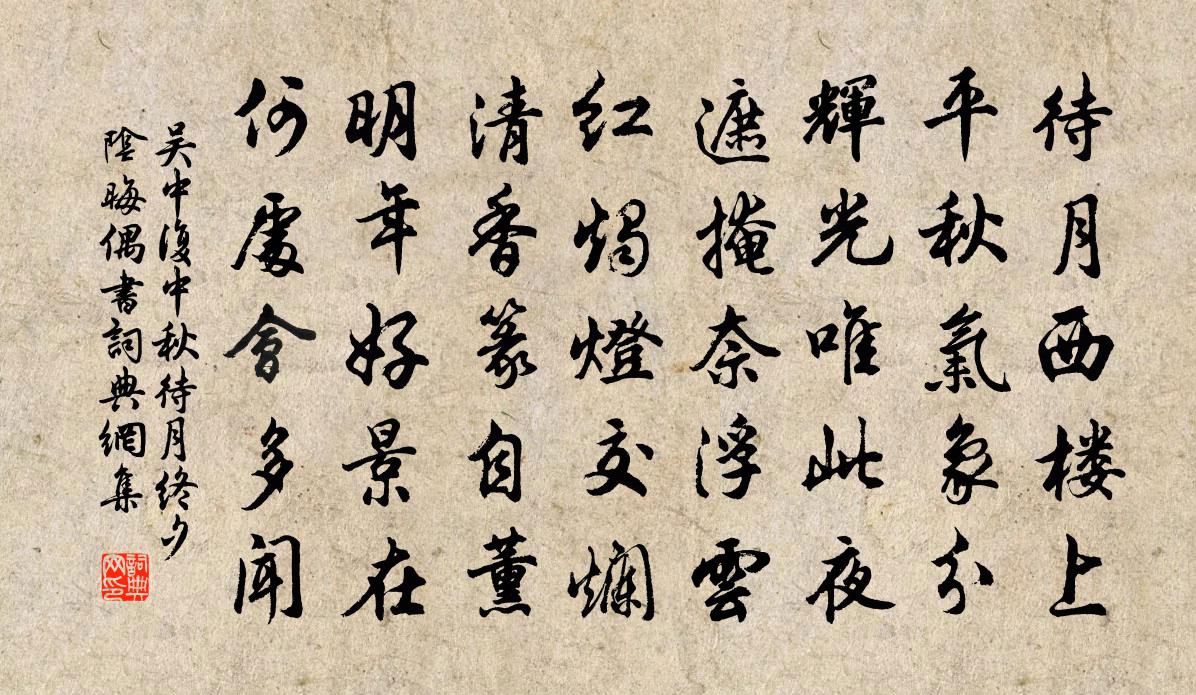 待月西楼上
平秋氣象分
輝光唯此夜
遮掩奈浮雲
红燭燈交爛
清香篆自薰
明年好景在
何處會多聞
吴中復中秋待月終夕
陰晦偶書詞典網集
詞典网印